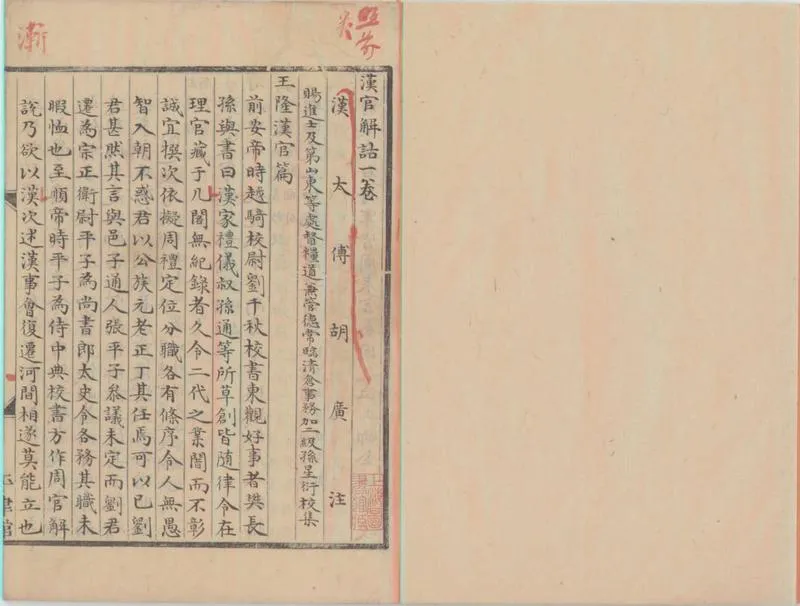 漢官解詁一卷
漢太傅胡廣注
賜進士及第山東等處督糧道兼管德常臨清倉事務加二級孫星衍校集
王隆漢官篇
前安帝時越騎校尉劉千秋校書東觀好事者樊長
孫與書曰漢家禮儀叔孫通等所草創皆隨律令在
理官藏于几閣無紀錄者久令二代之業闇而不彰
誠宜撰次依擬周禮定位分職各有條序令人無愚
智入朝不惑君以公族元老正丁其任焉可以已劉
君甚然其言與邑子通人張平子參議未定而劉君
遷為宗正衛尉平子為尚書郎太史令各務其職未
暇恤也至順帝時平子為侍中典校書方作周官解
說乃欲以漢次述漢事會復遷河間相遂莫能立也
津館
漸